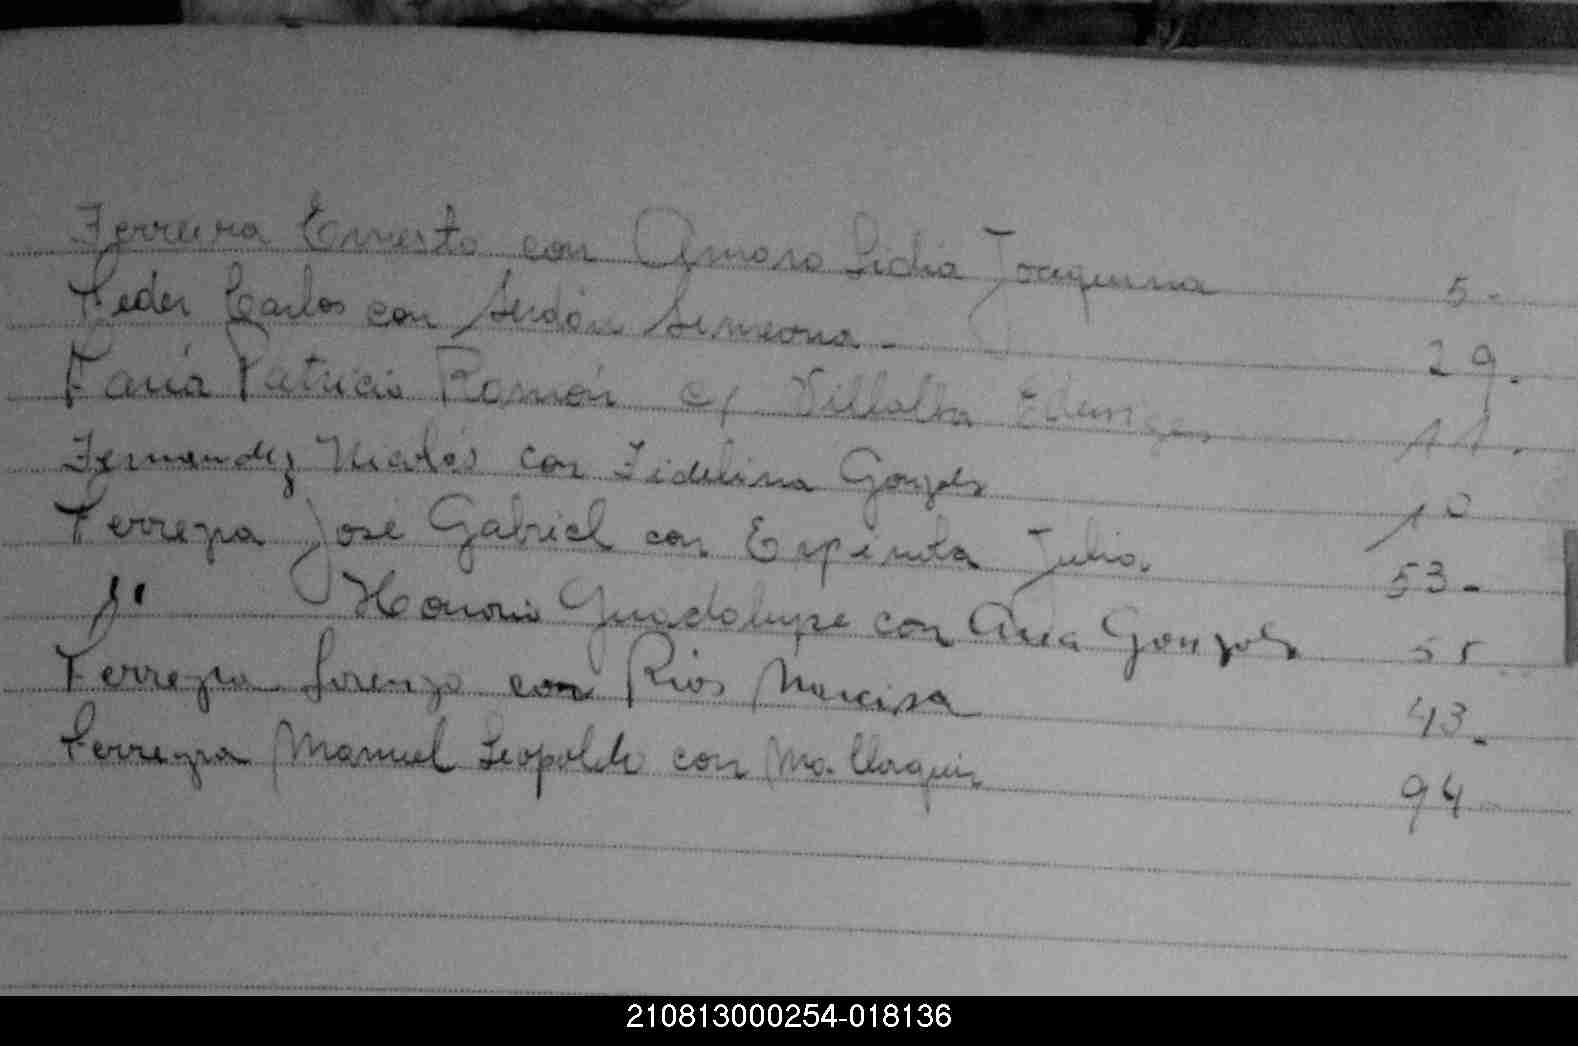 Ferreira Ernesto con Amaro Lidia Joaquina 5-
Feder Carlos con Simeona - 29.
Faria Patricio Ramón c/ Villalba Eduviges 11.
Fernandez Nicolás con Fidelina Gonzalez 10
Ferreyra José Gabriel con Espíndola Julia. 53-
" Honorio Guadalupe con Ana Gonzalez 55
Ferreyra Lorenzo con Rios Narcisa 43-
Ferreyra Manuel Leopoldo con Ma. 94
210813000254-018136